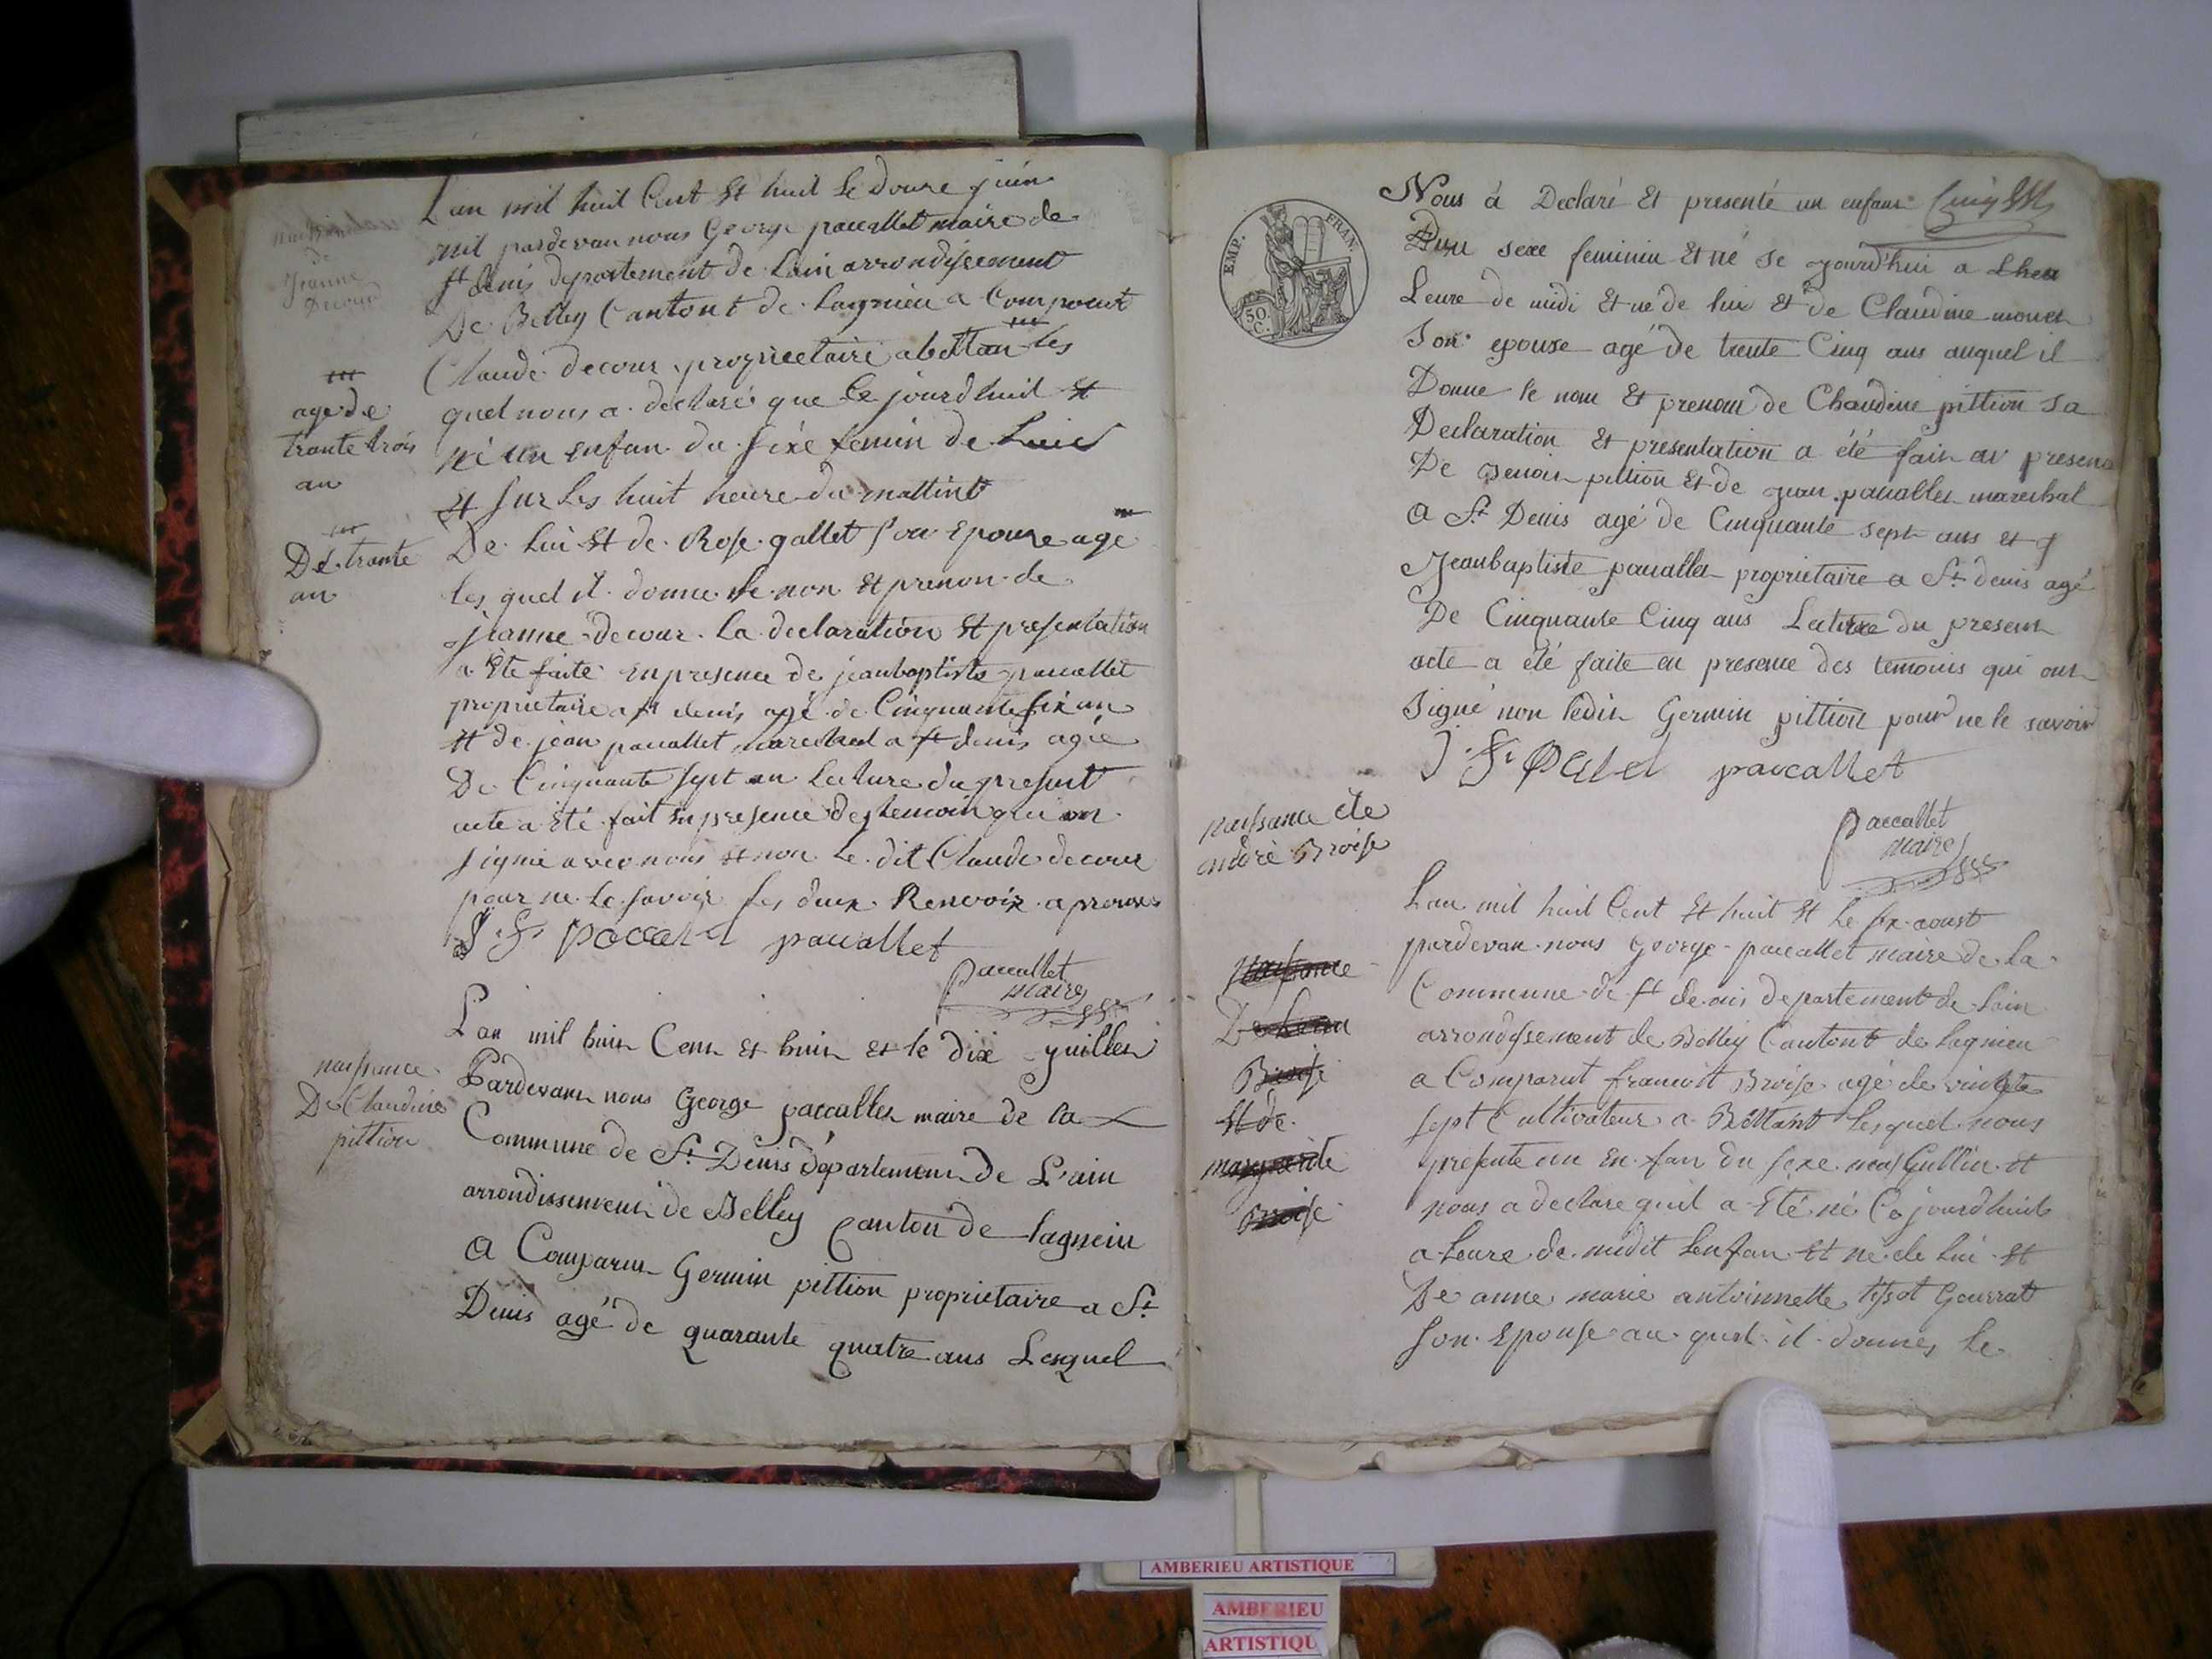 naissance
de
Jeanne
Decour
L'an mil huil Cent Et huil Le Douxe juin
mil pardevan nous George paucallet maire de
st denis departement de Lain arrondissement
De Belley Cantont de Lagnieu a Comparut
Claude decour propriectaire a bettan Les
quel nous a declaré que Ce jourdhuil Et
né un enfan du sixe femin de
Et sur Les huit heure du mattint
De Lui Et de Rose gallet son Epouse agé
Les quel il donne le non Et prenon de
jeanne decour La declaration Et presentation
a Ete faite en presence de jeanbaptiste paucallet
proprietaire a st denis agé de Cinquante six an
Et de jean paucallet marechal a st denis agée
De Cinquante sept an Lecture du present
acte a Eté fait En presence des temoin qui on
signié avec nous et non Le dit Claude decour
pour ne Le savoir les deux Renvoix aprouvés
age de
trante trois
an
De trante
an
J. B. paccalet paucallet
paucallet
maire
naissance
De Claudine
pittion
L'an mil huit Cent Et huit Et le dix juillet
Pardevant nous George paccallet maire de la
Commune de St Denis département de L'ain
arrondissement de Belley Canton de lagneiu
A Comparut Germin pittion proprietaire a St
Denis agé de quarante quatre ans Lesquel
EMP. FRAN.
50
C.
Nous á Declaré Et presenté un enfant
Du sexe feminin Et né se jourd'hui a Lheu
Leure de midi Et né de lui Et de Claudine
Son epouse agé de trente Cinq ans auquel il
Donne le nom Et prenom de Claudine pittion sa
Declaration Et presentation a été fait av presence
De Benoit pittion Et de jean paucallet marechal
A St Denis agé de Cinquante sept ans et
Jeanbaptiste paucallet proprietaire a St denis agé
De Cinquante Cinq ans Lecture du present
acte a été faite en presence des temoins qui ont
Signé non ledit Germin pittion pour ne le savoir
paucallet
paccallet
maire
naissance de
andré Broise
naissance
De
Broise
Et de
marguerite
Broise
L'an mil huil Cent Et huit Et Le six aoust
pardevan nous George paucallet maire de La
Commune de st denis departement de Lain
arrondissement de Belley Cantont de Lagnieu
a Comparut francoit Broise agé de vingte
sept Cultivateur a Bettant Lesquel nous
presente un En fan du sexe masGullin et
nous a declare quil a Eté né Ce jourdhuit
a Leure de midit Lenfan Et né de Lui Et
De anne marie antoinnette tissot Gourrat
son Epouse au quel il donnes Le
AMBERIEU ARTISTIQUE
AMBERIEU
ARTISTIQU